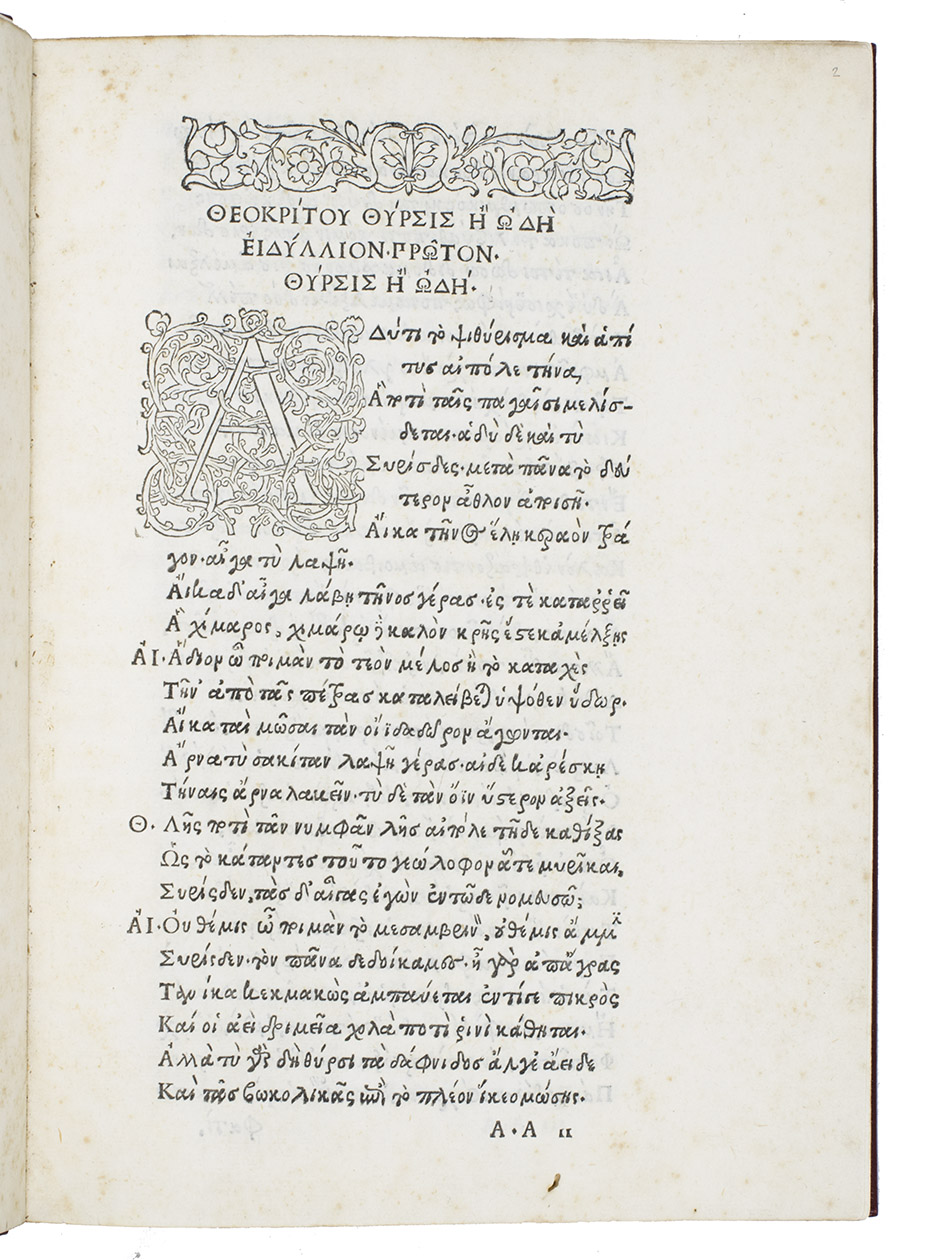 2
ΘΕΟΚΡΊΤΟΥ ΘΎΡΣΙΣ Ἢ ὨΔῊ
ἘΙΔΎΛΛΙΟΝ·ΠΡΩ͂ΤΟΝ·
ΘΎΡΣΙΣ Ἢ ὨΔΉ·
Α Δύτι τὸ ψιθύρισμα καὶ ἁπί
τυσ αἰπόλε τήνα,
Ἃ ποτὶ ταῖς παγαῖσι μελίσ-
δεται·ἁδὺ δὲ καὶ τὺ
Συρίσδες·μετὰ πᾶνα τὸ δεύ
τερον ἆθλον ἀποισῇ·
Αἴκα τῆνος ἕλῃ κεραὸν τρά
γον·αἶγα τὺ λαψῇ·
Αἴκα δ'αἶγα λάβῃ τῆνος γέρασ·ἐς τὲ καταῤῥεῖ
Ἁ χίμαρος, χιμάρῳ δὲ καλὸν κρῆς ἔςε κ'ἀμέλξῃς
ἈΙ·Ἅδιον ὦ ποιμὰν τὸ τεὸν μέλος ἢ τὸ καταχὲς
Τῆν' ἀπὸ τᾶς πέτρας καταλείβεται ὑψόθεν ὕδωρ.
Αἴκα ταὶ μῶσαι τὰν οἴϊδα δῶρον ἄγωνται·
Ἄρνα τὺ σακίταν λαψῇ γέρασ·αἰ δέ κ'ἀρέσκῃ
Τήναις ἄρνα λαβεῖν·τὺ δὲ τὰν ὄϊν ὕςερον ἀξεῖς·
Θ· Λῇς ποτὶ τᾶν νυμφᾶν λῇς αἰπόλε τῇδε καθίξας
Ὡς τὸ κάταντες τοῦτο γεώλοφον ᾇτε μυρῖκαι,
Συρίσδεν,τὰσ δ'αἶγας ἐγὼν ἐντῶδε νομευσῶ;
ἈΙ·Οὐ θέμις ὦ ποιμὰν τὸ μεσαμβρινὸν, οὐ θέμις ἄμμιν
Συρίσδεν·τὸν πᾶνα δεδοίκαμες·ἦ γὰρ ἀπ'ἄγρας
Τανίκα κεκμακὼς ἀμπαύεται ἐντίγε πικρὸς
Καί οἱ ἀεὶ δριμεῖα χολὰ ποτὶ ῥινὶ κάθηται·
Ἀλλὰ τὺ γὰρ δὴ θύρσι τὰ δάφνιδος ἄλγε' ἄειδε
Καὶ τᾶς βωκολικᾶς ἐπὶ τὸ πλέον ἵκεο μώσης·
Α·Α ιι